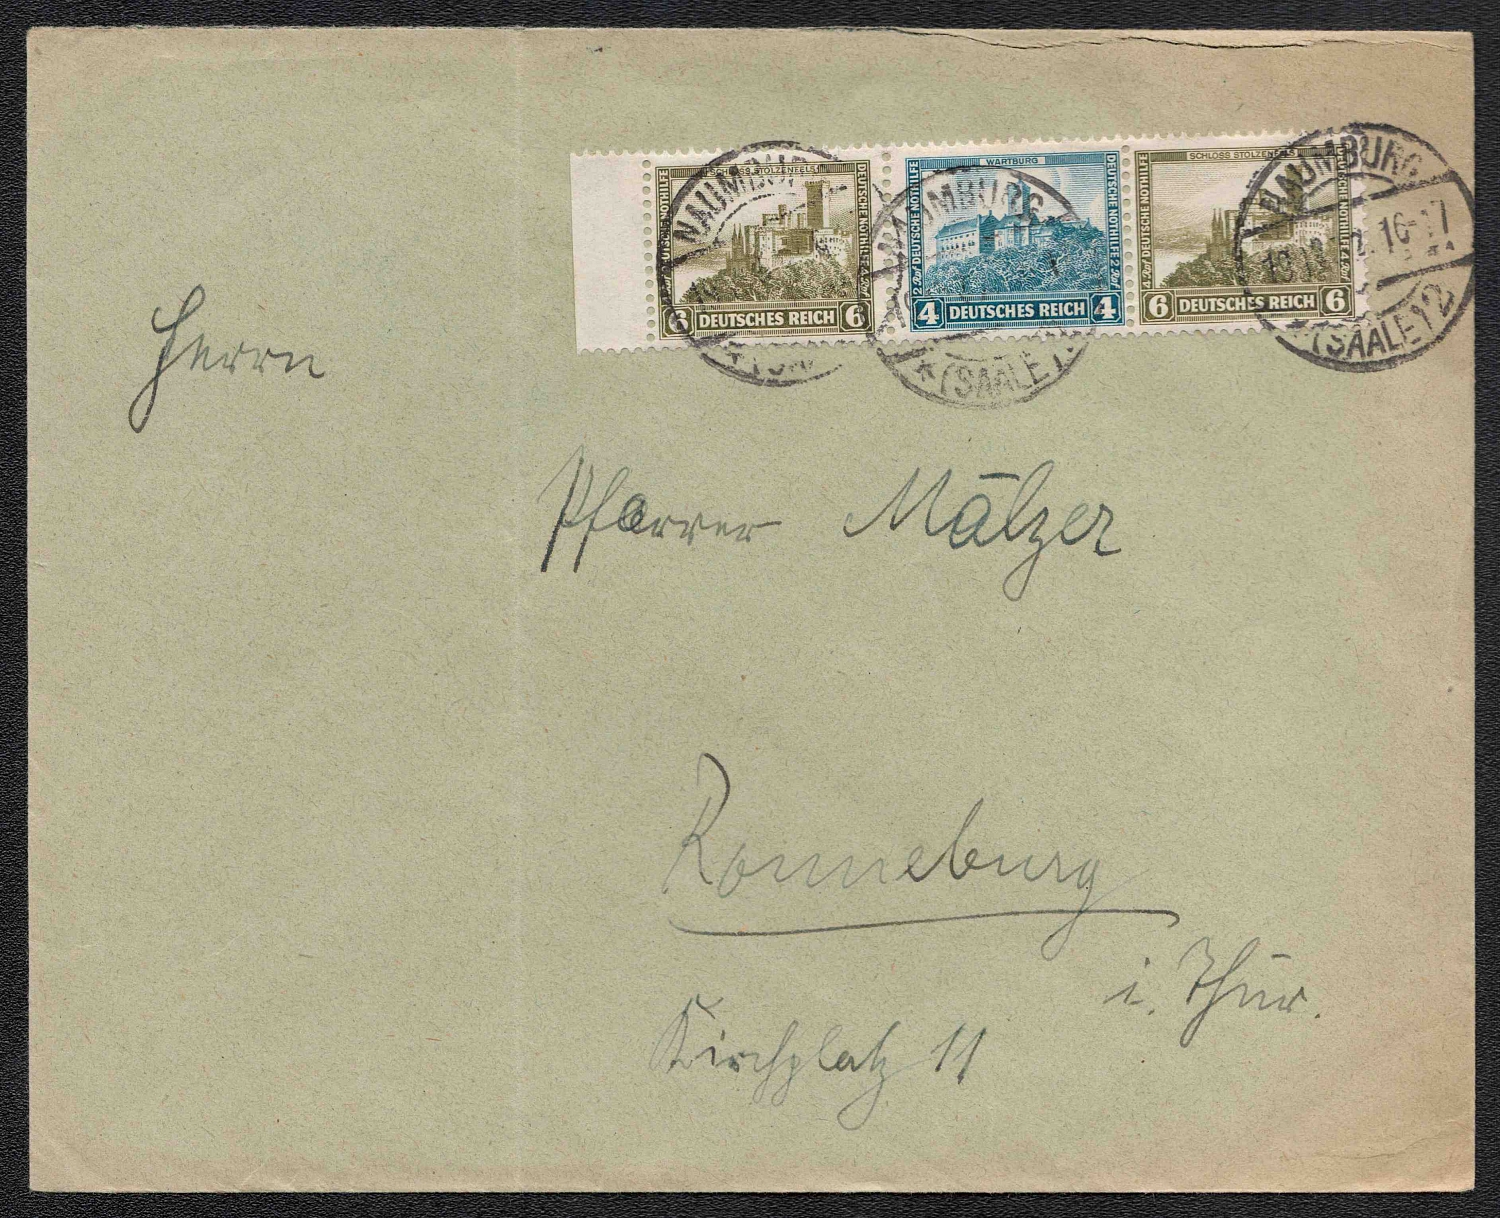 SCHLOSS STOLZENFELS
DEUTSCHE NOTHILFE
DEUTSCHE NOTHILFE 4 Rpf
6 DEUTSCHES REICH 6
WARTBURG
2 Rpf DEUTSCHE NOTHILFE
DEUTSCHE NOTHILFE 2 Rpf
4 DEUTSCHES REICH 4
SCHLOSS STOLZENFELS
4 Rpf DEUTSCHE NOTHILFE
6 DEUTSCHES REICH 6
NAUMBURG
NAUMBURG
* (SAALE)
NAUMBURG
16-17
(SAALE) 2
Herrn
Pfarrer Mälzer
Ronneburg
i. Thür.
Kirchplatz 11